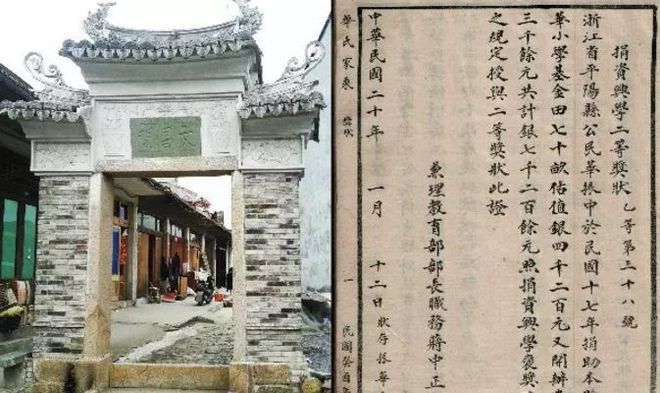 捐資興學二等獎狀 乙等第三十八號
浙江省平陽縣公民華振中於民國十七年捐助本
華小學基金田七十畝估值銀四千二百元又開辦
三千餘元共計銀七千二百餘元照捐資興學褒獎
之規定授與二等獎狀此證
兼理教育部部長職務蔣中正
中華民國二十年 一月 十二日 狀存振華
華氏家乘 獎狀 一 民國癸酉